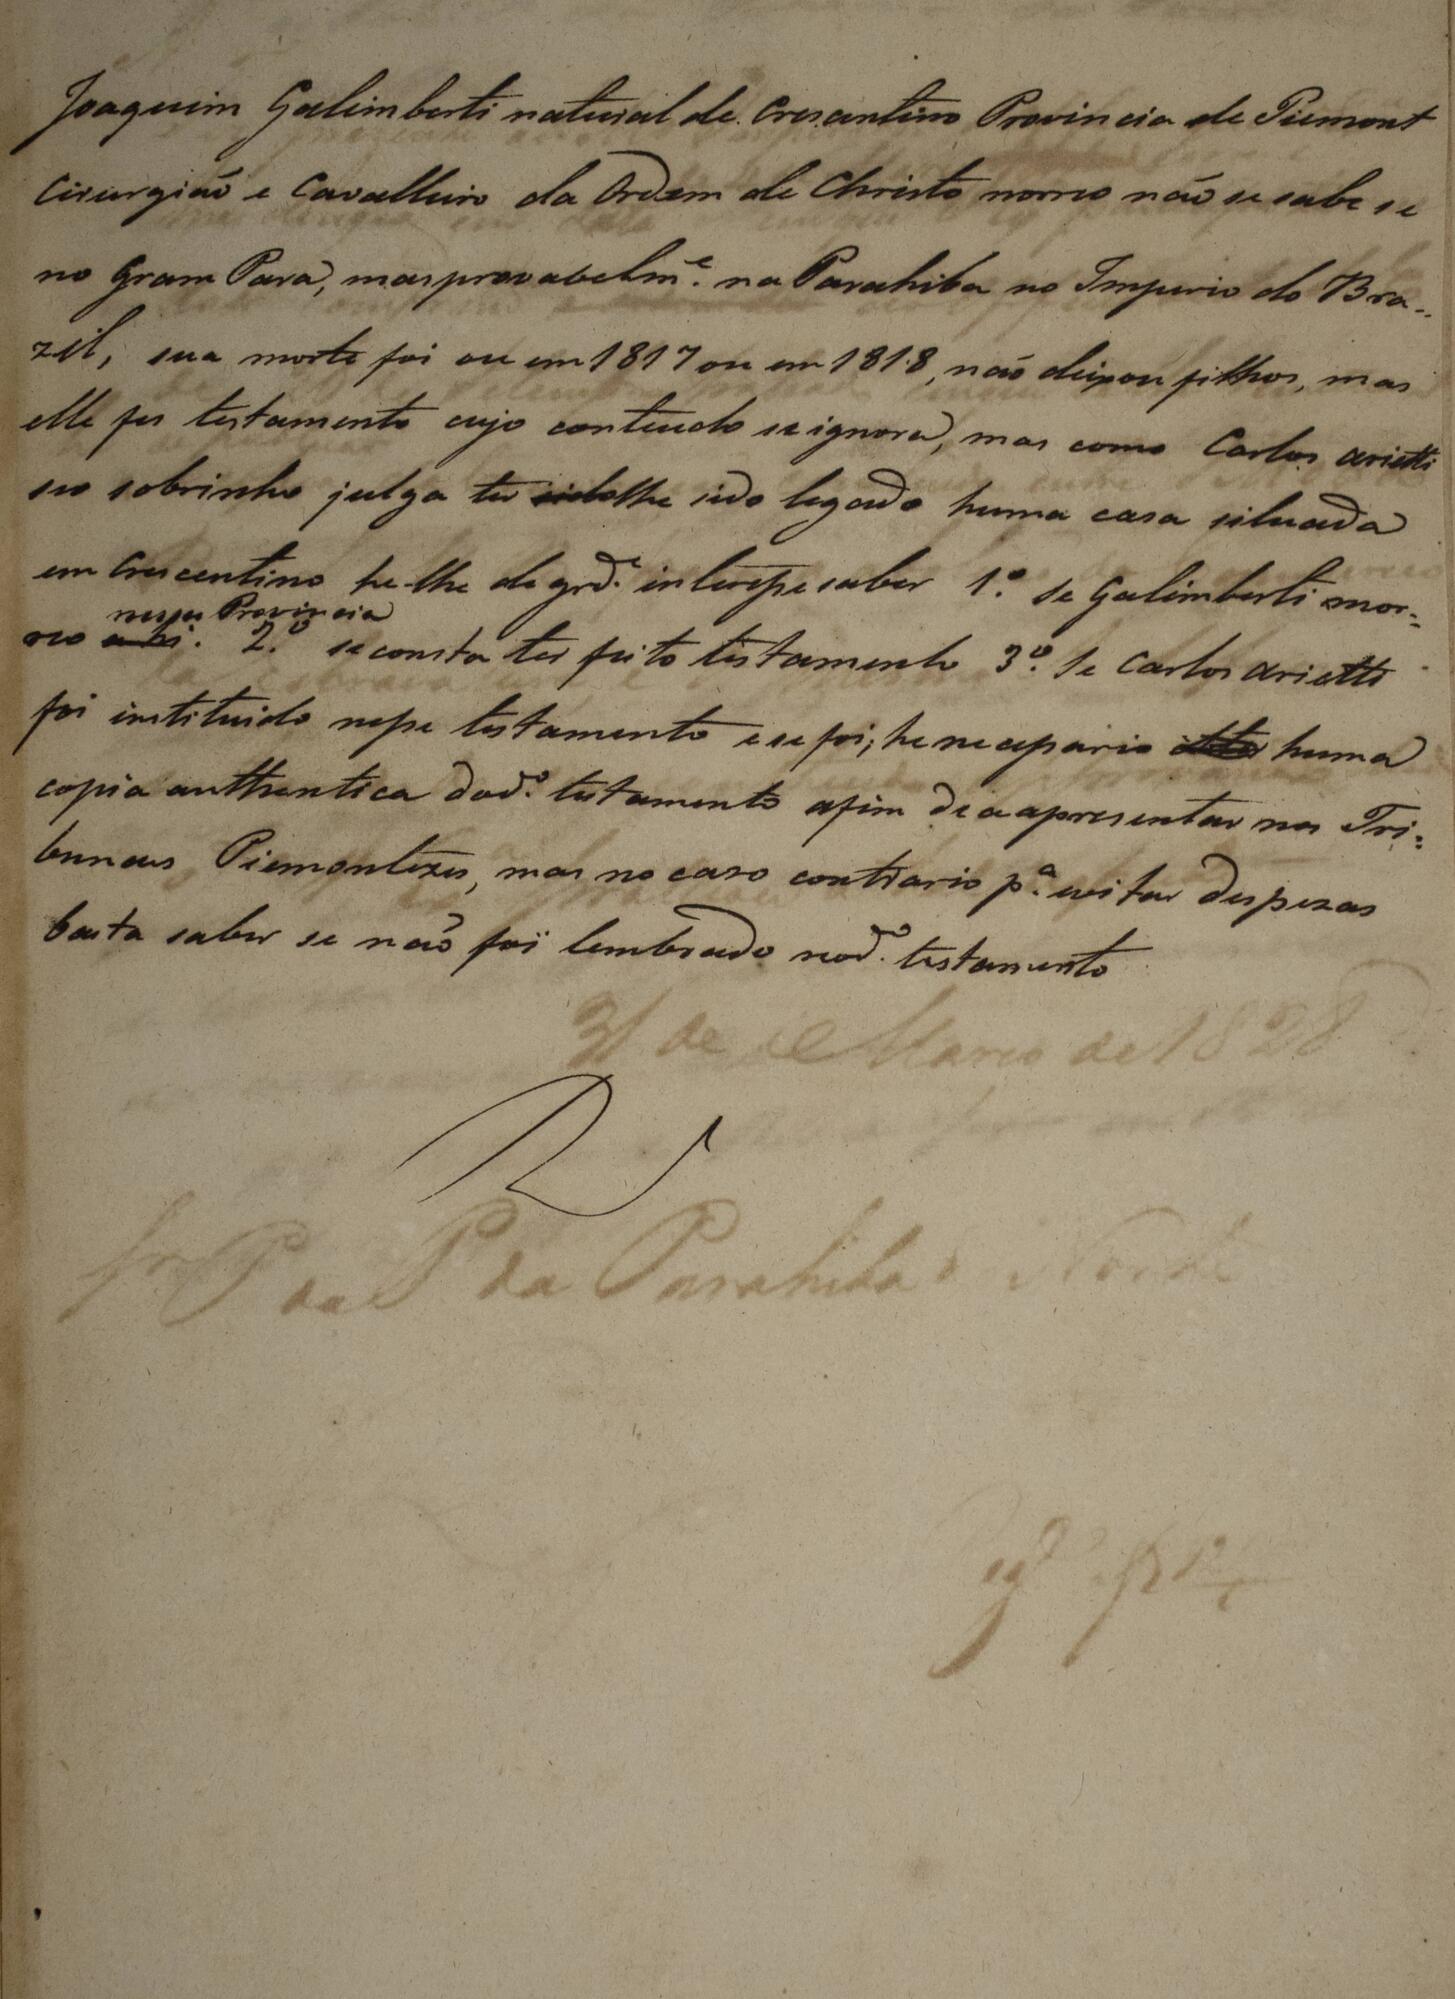 Joaquim Galimberti natural de Cresantino Provincia de Piemont
Cirurgiaõ e Cavalleiro da Ordem de Christo morreo naõ se sabe se
no Gram Pará, mas provabelm.e na Parahiba no Imperio do Bra-
zil, sua morte foi ou em 1817 ou em 1818, naõ deixou filhos, mas
elle fes testamento cujo conteudo se ignora, mas como Carlos Arietti
seo sobrinho julga ter sidolhe sido legado huma casa situada
em Crescentino he-lhe de grd.e interesse saber 1.o se Galimberti mor-
nessa Provincia
reo ahi. 2.o se consta ter feito testamento 3.o se Carlos Arietti
foi instituido nesse testamento e se foi; he necessario huma
copia authentica do d.o testamento afim de a apresentar nos Tri-
bunaes Piemontezes, mas no caso contrario p.a evitar despezas
basta saber se naõ foi lembrado no d.o testamento
31 de Março de 1828
Sr P da P da Parahiba Norte